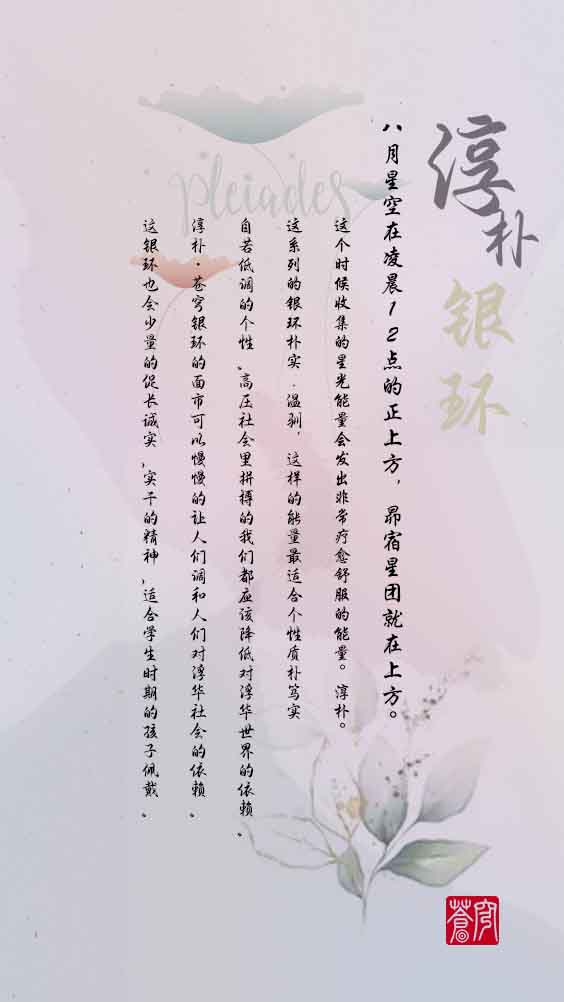 淳朴
银环
八月星空在凌晨12点的正上方，昴宿星团就在上方。
这个时候收集的星光能量会发出非常疗愈舒服的能量。淳朴。
这系列的银环朴实.温驯，这样的能量最适合个性质朴笃实
自若低调的个性、高压社会里拼搏的我们都应该降低对浮华世界的依赖、
淳朴·苍穹银环的面市可以慢慢的让人们调和人们对浮华社会的依赖、
这银环也会少量的促长诚实、实干的精神、适合学生时期的孩子佩戴、
Pleiades
蒼穹